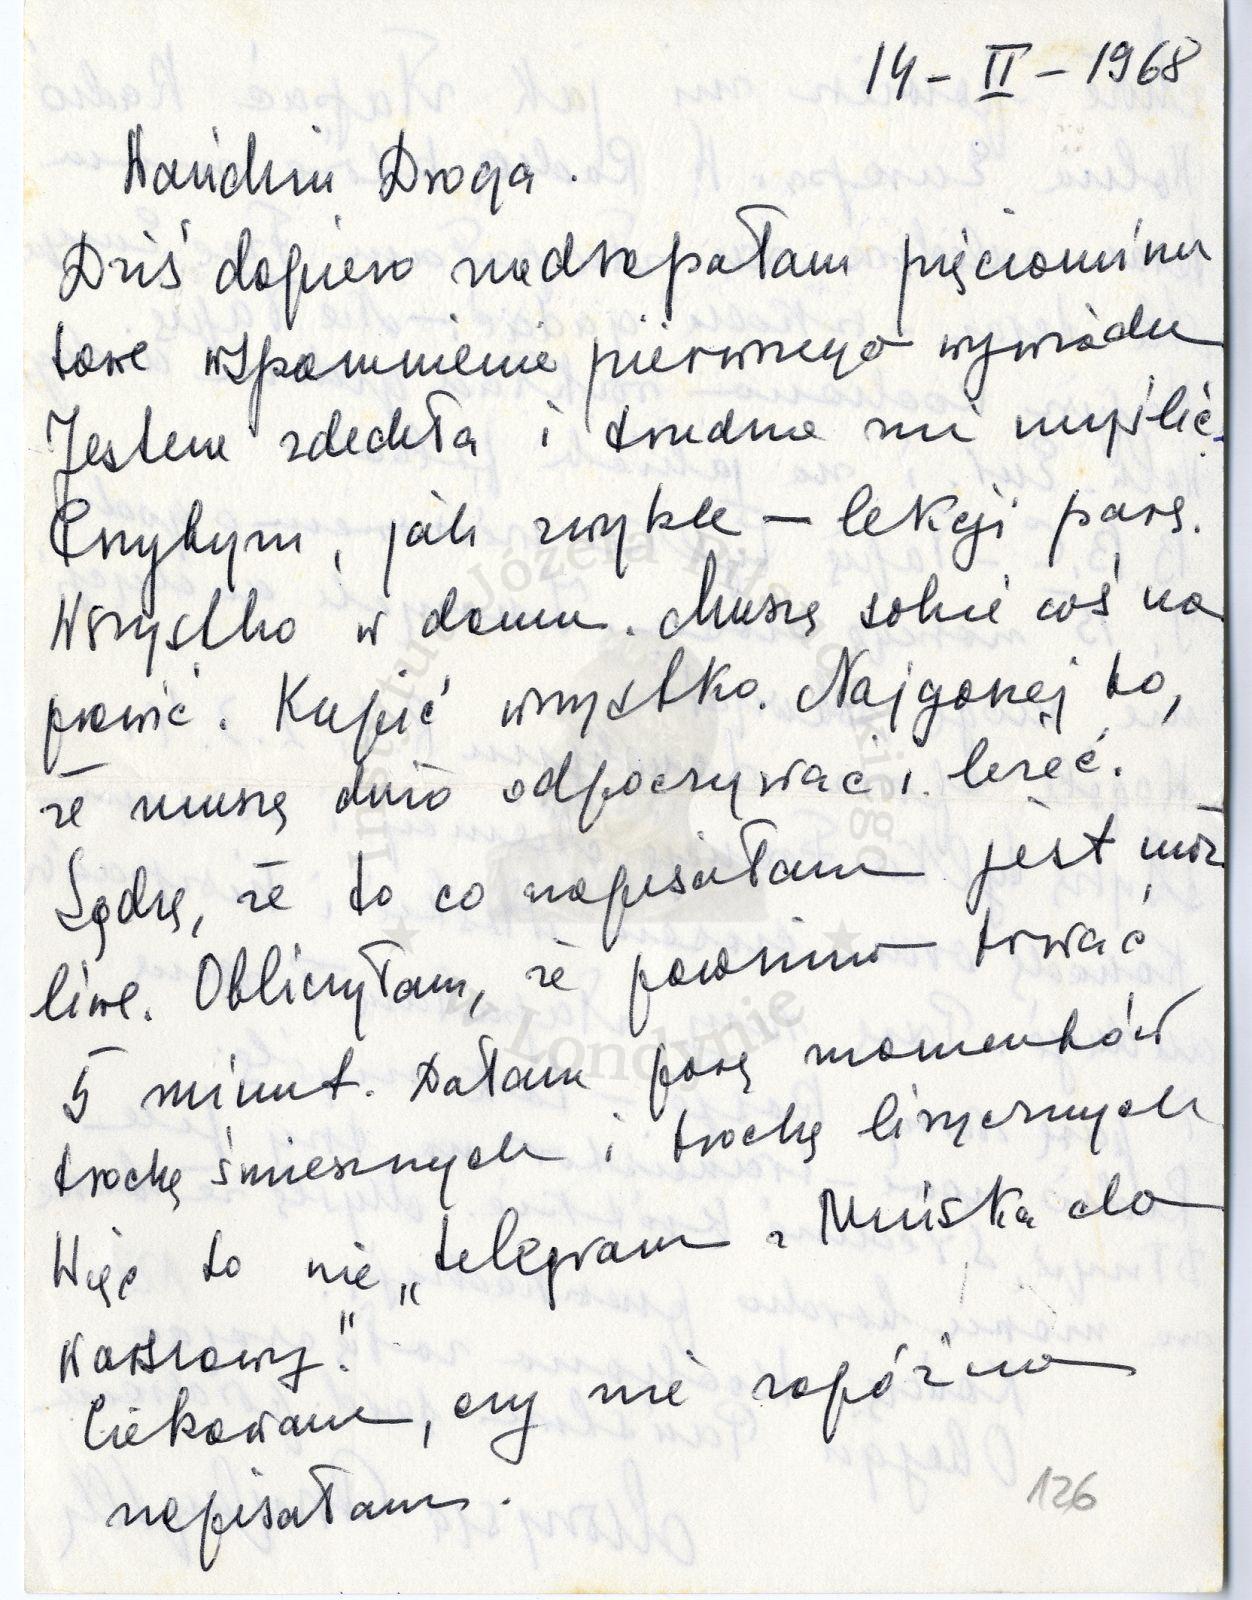 14 - II - 1968
Hanichiu Droga.
Dziś dopiero nadrapałam pięciominu
towe wspomnienie pierwszego wywiadu
Jestem zdechła i trudno mi myśleć.
Czytam, jak zwykle — lekcji parę.
Wszystko w domu. Muszę sobie coś na
prawić. Kupić wszystko. Najgorzej to,
że muszę dużo odpoczywać i leżeć.
Sądzę, że to co napisałam jest moż
liwe. Obliczyłam, że powinno trwać
5 minut. Dałam parę momentów
trochę śmiesznych i trochę lirycznych
Więc to nie „telegram z Mińska do
Warszawy".
Ciekawam, czy nie zapóźno
napisałam.
126
Instytut Józefa Piłsudskiego
w Londynie